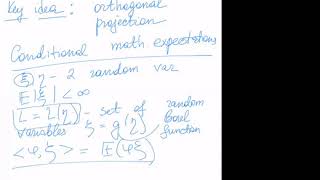 Key idea: orthogonal
projection
Conditional math. expectations
ξ, η - 2 random var
E|ξ| < ∞
L = L(η) - set of random
variables ζ = g(η) Borel
function
<φ, ξ> = E(φξ)